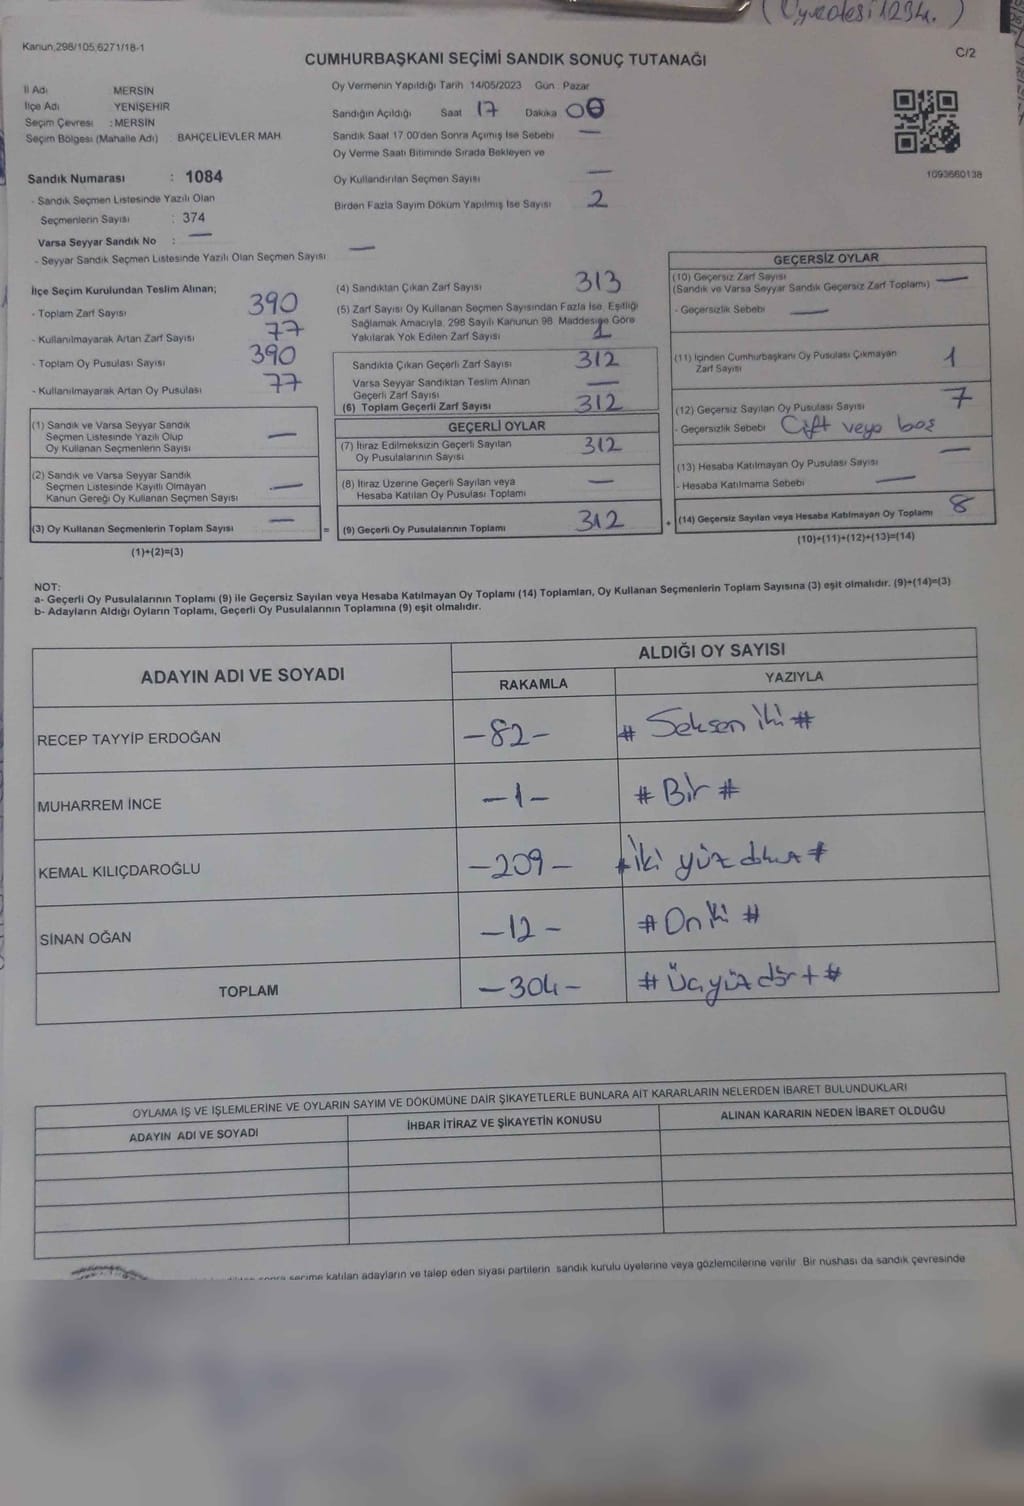 ( Oyveotesi 1294. )
Kanun;298/105,6271/18-1
C/2
CUMHURBAŞKANI SEÇİMİ SANDIK SONUÇ TUTANAĞI
İl Adı MERSİN
İlçe Adı YENİŞEHİR
Seçim Çevresi : MERSİN
Seçim Bölgesi (Mahalle Adı) : BAHÇELİEVLER MAH
Sandık Numarası : 1084
- Sandık Seçmen Listesinde Yazılı Olan
Seçmenlerin Sayısı : 374
Varsa Seyyar Sandık No : —
- Seyyar Sandık Seçmen Listesinde Yazılı Olan Seçmen Sayısı —
Oy Vermenin Yapıldığı Tarih 14/05/2023 Gün : Pazar
Sandığın Açıldığı Saat 17 Dakika 00
Sandık Saat 17:00'den Sonra Açımış İse Sebebi —
Oy Verme Saati Bitiminde Sırada Bekleyen ve
Oy Kullandırılan Seçmen Sayısı —
Birden Fazla Sayım Döküm Yapılmış İse Sayısı 2
1093660138
İlçe Seçim Kurulundan Teslim Alınan;
- Toplam Zarf Sayısı 390
- Kullanılmayarak Artan Zarf Sayısı 77
- Toplam Oy Pusulası Sayısı 390
- Kullanılmayarak Artan Oy Pusulası 77
(1) Sandık ve Varsa Seyyar Sandık
Seçmen Listesinde Yazılı Olup
Oy Kullanan Seçmenlerin Sayısı —
(2) Sandık ve Varsa Seyyar Sandık
Seçmen Listesinde Kayıtlı Olmayan
Kanun Gereği Oy Kullanan Seçmen Sayısı —
(3) Oy Kullanan Seçmenlerin Toplam Sayısı —
(1)+(2)=(3)
(4) Sandıktan Çıkan Zarf Sayısı 313
(5) Zarf Sayısı Oy Kullanan Seçmen Sayısından Fazla İse, Eşitliği
Sağlamak Amacıyla, 298 Sayılı Kanunun 98. Maddesine Göre
Yakılarak Yok Edilen Zarf Sayısı 1
Sandıkta Çıkan Geçerli Zarf Sayısı 312
Varsa Seyyar Sandıktan Teslim Alınan
Geçerli Zarf Sayısı —
(6) Toplam Geçerli Zarf Sayısı 312
GEÇERLİ OYLAR
(7) İtiraz Edilmeksizin Geçerli Sayılan
Oy Pusulalarının Sayısı 312
(8) İtiraz Üzerine Geçerli Sayılan veya
Hesaba Katılan Oy Pusulası Toplamı —
= (9) Geçerli Oy Pusulalarının Toplamı 312
GEÇERSİZ OYLAR
(10) Geçersiz Zarf Sayısı
(Sandık ve Varsa Seyyar Sandık Geçersiz Zarf Toplamı) —
- Geçersizlik Sebebi —
(11) İçinden Cumhurbaşkanı Oy Pusulası Çıkmayan
Zarf Sayısı 1
(12) Geçersiz Sayılan Oy Pusulası Sayısı 7
- Geçersizlik Sebebi Çift veya boş
(13) Hesaba Katılmayan Oy Pusulası Sayısı —
- Hesaba Katılmama Sebebi —
+ (14) Geçersiz Sayılan veya Hesaba Katılmayan Oy Toplamı 8
(10)+(11)+(12)+(13)=(14)
NOT:
a- Geçerli Oy Pusulalarının Toplamı (9) ile Geçersiz Sayılan veya Hesaba Katılmayan Oy Toplamı (14) Toplamları, Oy Kullanan Seçmenlerin Toplam Sayısına (3) eşit olmalıdır. (9)+(14)=(3)
b- Adayların Aldığı Oyların Toplamı, Geçerli Oy Pusulalarının Toplamına (9) eşit olmalıdır.
ADAYIN ADI VE SOYADI ALDIĞI OY SAYISI
RAKAMLA YAZIYLA
RECEP TAYYİP ERDOĞAN -82- # Seksen iki #
MUHARREM İNCE -1- # Bir #
KEMAL KILIÇDAROĞLU -209- # iki yüz dokuz #
SİNAN OĞAN -12- # On iki #
TOPLAM -304- # Üçyüz dört #
OYLAMA İŞ VE İŞLEMLERİNE VE OYLARIN SAYIM VE DÖKÜMÜNE DAİR ŞİKAYETLERLE BUNLARA AİT KARARLARIN NELERDEN İBARET BULUNDUKLARI
ADAYIN ADI VE SOYADI İHBAR İTİRAZ VE ŞİKAYETİN KONUSU ALINAN KARARIN NEDEN İBARET OLDUĞU
sonra seçime katılan adayların ve talep eden siyasi partilerin sandık kurulu üyelerine veya gözlemcilerine verilir. Bir nüshası da sandık çevresinde